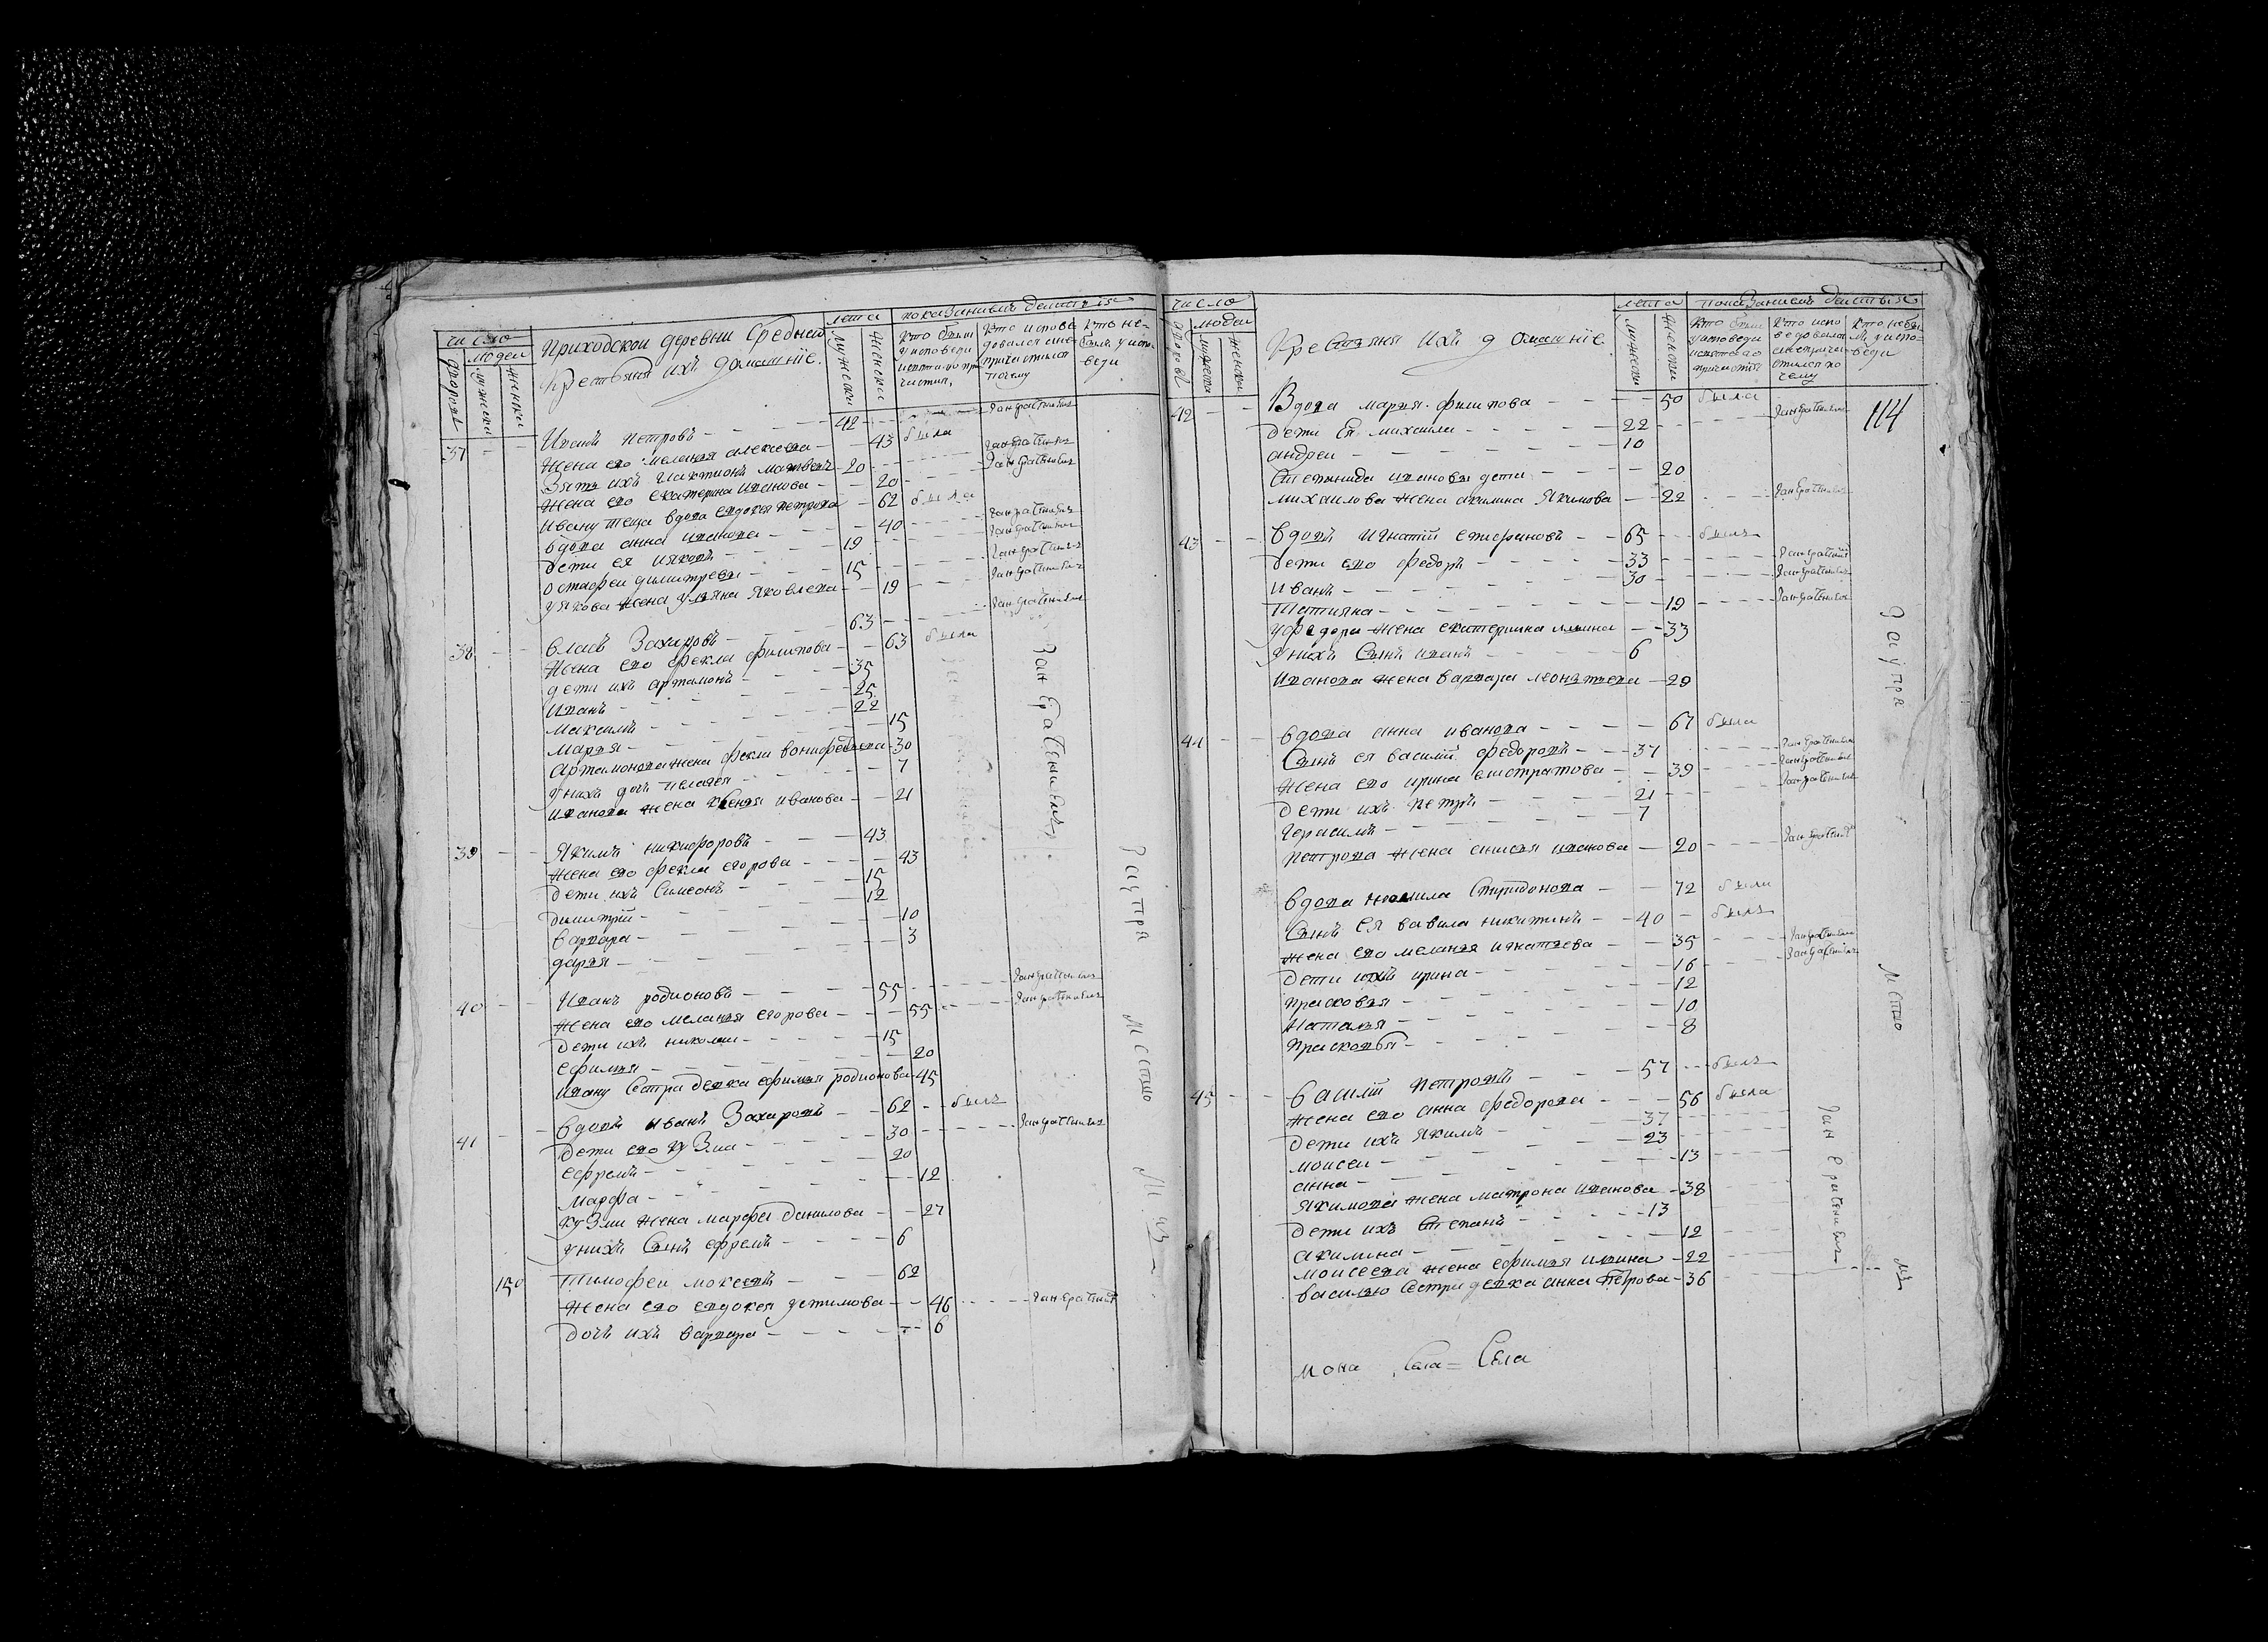 число
людеи
дворовъ
мужеска
женска
Приходскои деревни Среднеи
крестьяня ихъ домашніе.
лета
мужески
женски
показаниемъ деиствія
кто были у исповеди и святаго причастия
кто исповедовался а не причастился почему
кто не были у исповеди
37 Иванъ петровъ 42
Жена его меланья алексеева 43 была
Зять ихъ матвеи 20
Жена его екатерина иванова 20
ивану теща вдова евдокея петрова 62 была
вдова анна иванова 40
дети ея иаковъ 19
остафеи димитреевы 15
у якова жена ульяна яковлева 19
38 власъ Захаровъ 63
Жена его фекла филипова 63 была
дети ихъ артамонъ 35
Иванъ 25
максимъ 22
марья 15
артамонова жена фекла 30
у нихъ дочь пелагея 7
иванова жена ксенья иванова 21
39 Якимъ никифоровъ 43
жена его фекла егорова 43
дети ихъ Симеонъ 15
димитріи 12
варвара 10
дарья 3
40 Иванъ родионовъ 55
жена его меланья егорова 55
дети ихъ николаи 15
ефимья 20
ивану Сестра девка ефимья родионова 45
41 вдовъ иванъ Захаровъ 62 былъ
дети его куЗма 30
ефремъ 20
марфа 12
куЗмы жена марфа данилова 27
у нихъ Сынъ ефремъ 6
150 тимофеи мокеевъ 62
жена его евдокея устимова 46
дочь ихъ варвара 6
число
людеи
дворовъ
мужеска
женска
Крестьяня ихъ домашніе.
лета
мужески
женски
показаниемъ деиствія
кто были у исповеди и святаго причастия
кто исповедовался а не причастился почему
кто не были у исповеди
114
42 Вдова марья филипова 50 была
дети ея михаила 22
андреи 10
Степанида ивановы дети 20
михаилова жена акилина Якимова 22
43 вдовъ Игнатіи 65 былъ
дети его федоръ 33
иванъ 30
Татияна 19
у федора жена екатерина 33
у нихъ Сынъ иванъ 6
иванова жена варвара леонтьева 29
44 вдова анна иванова 67 была
Сынъ ея василіи федоровъ 37
жена его ирина евстратова 39
дети ихъ петръ 21
герасимъ 7
петрова жена анисья иванова 20
вдова Спиридонова 72 была
Сынъ ея вавила никитинъ 40 былъ
жена его меланья игнатьева 35
дети ихъ ирина 16
прасковья 12
наталья 10
прасковья 8
45 василіи петровъ 57 былъ
жена его анна федорова 56 была
дети ихъ якимъ 37
моисеи 23
анна 13
якимова жена матрона иванова 38
дети ихъ Степанъ 13
акилина 12
моисеева жена ефимья ильина 22
василью Сестра девка анна петрова 36
Села